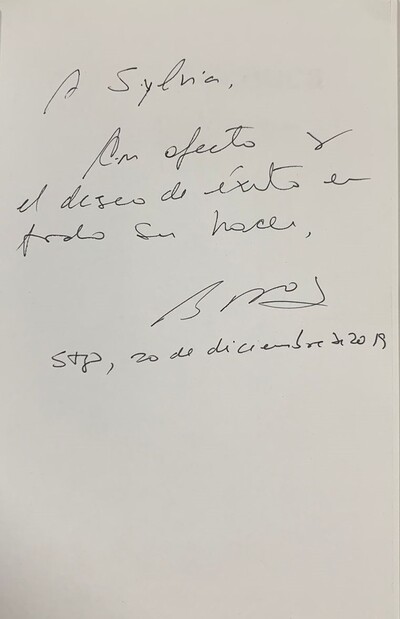 A Sylvia,
Con afecto y
el deseo de éxito en
todo su hacer,
20 de diciembre de 2019